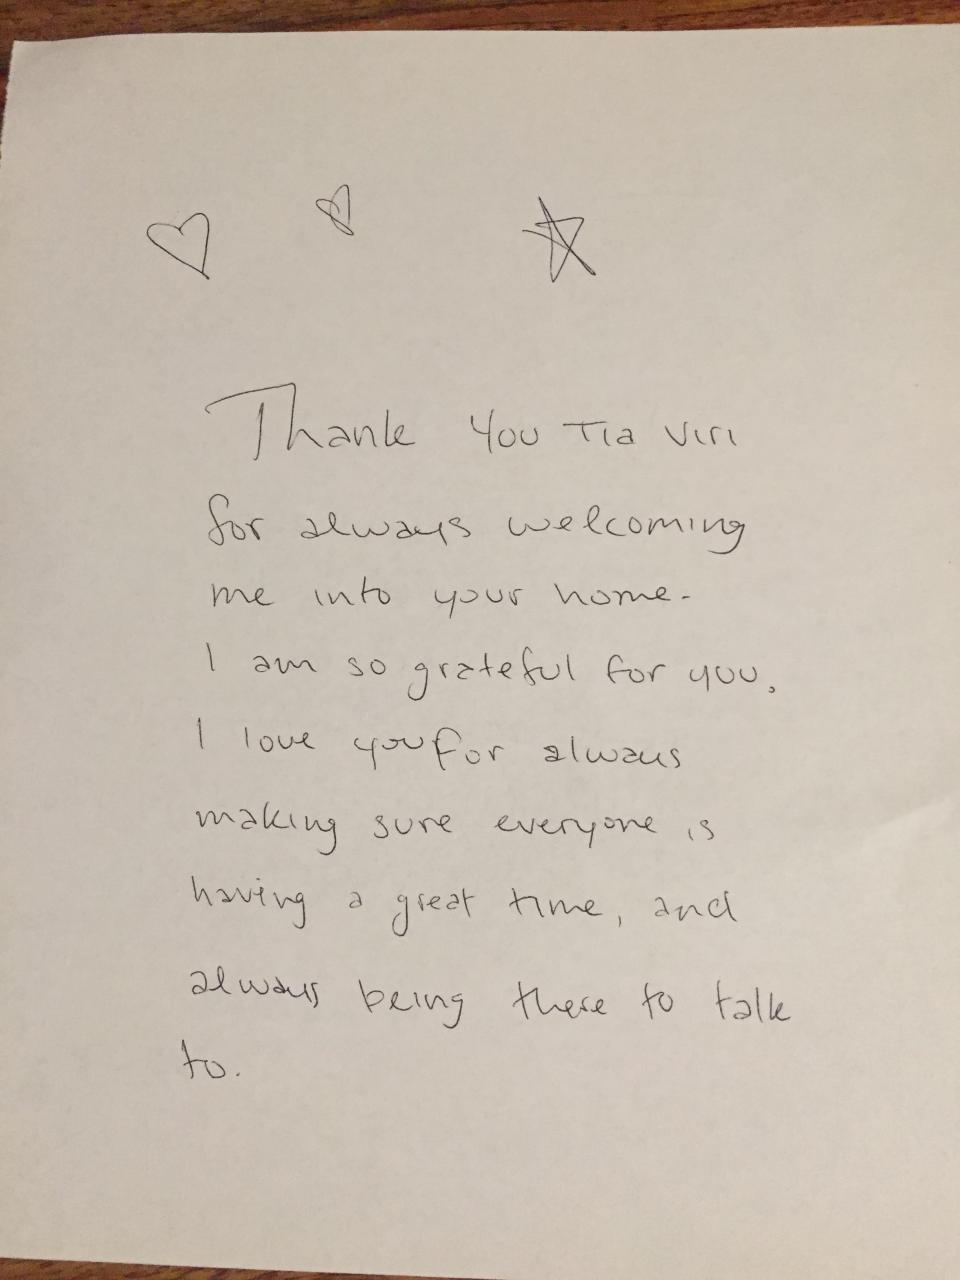 Thank You Tia Viri
for always welcoming
me into your home.
I am so grateful for you.
I love you for always
making sure everyone is
having a great time, and
always being there to talk
to.